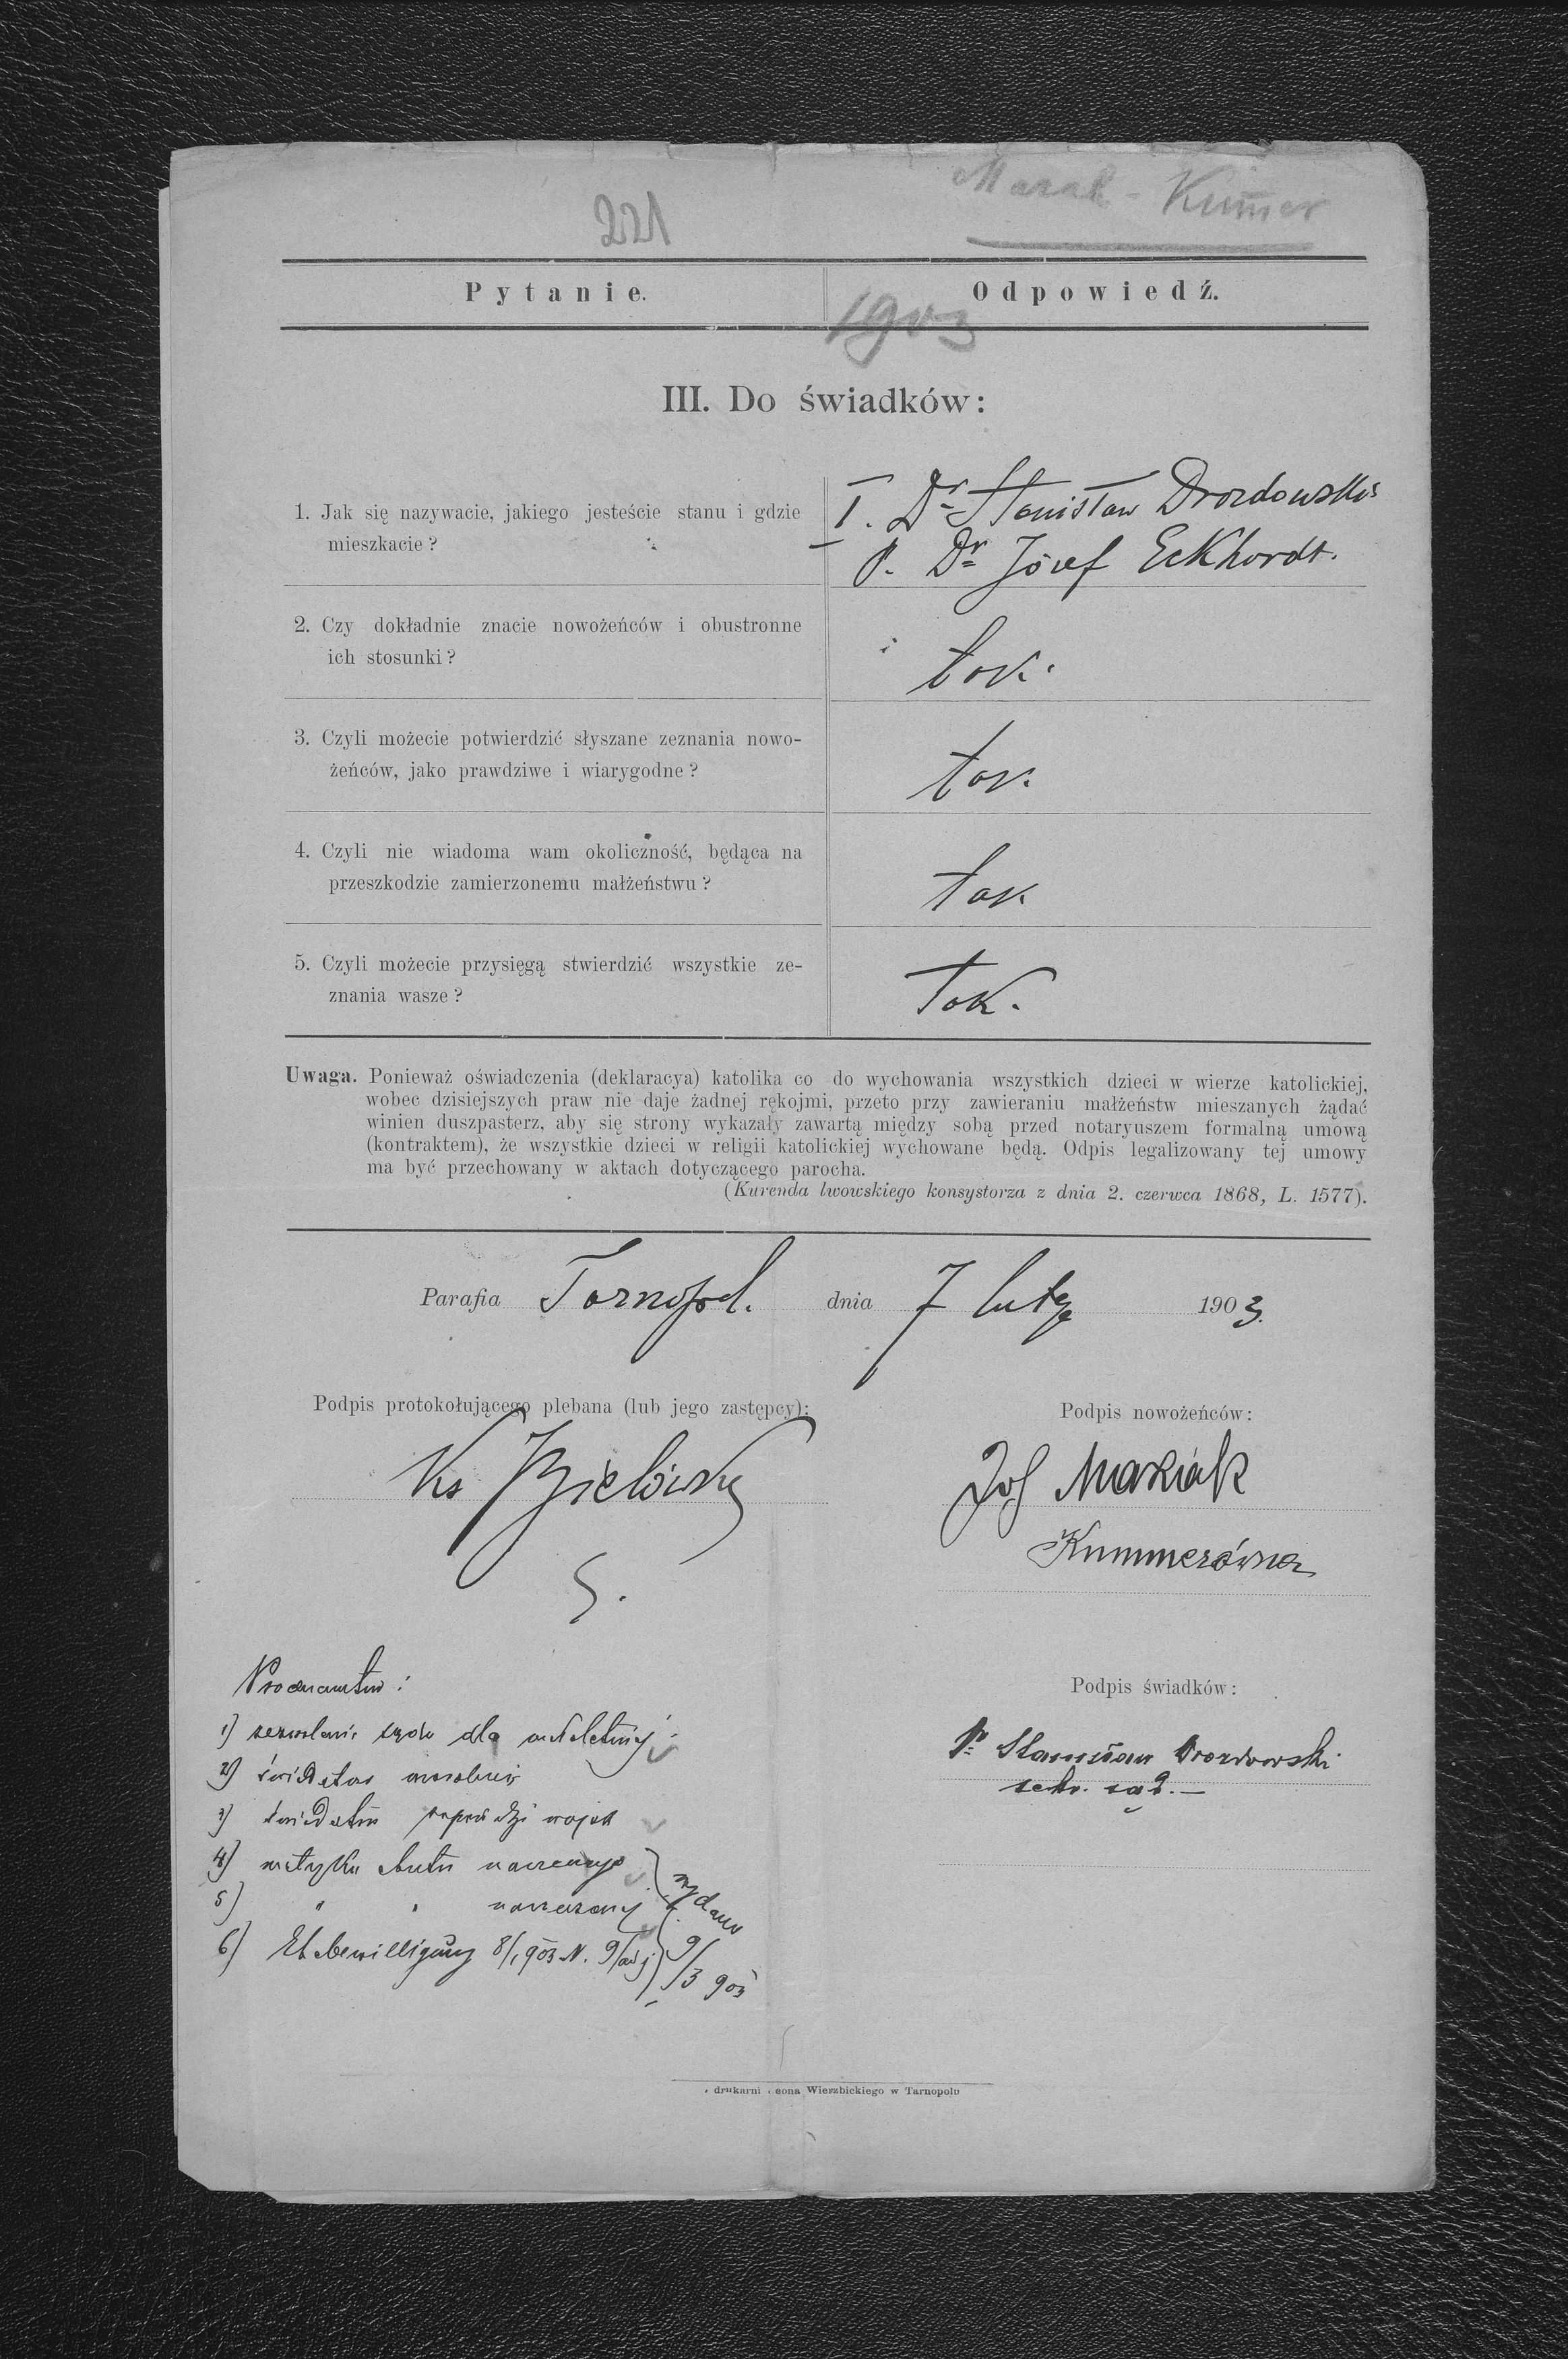 221
Marak - Kum̄er
Pytanie.
Odpowiedź.
1903
III. Do świadków:
1. Jak się nazywacie, jakiego jesteście stanu i gdzie
mieszkacie?
I. Dr Stanisław Drozdowski
P. Dr Józef Eckhardt.
2. Czy dokładnie znacie nowożeńców i obustronne
ich stosunki?
tak.
3. Czyli możecie potwierdzić słyszane zeznania nowo-
żeńców, jako prawdziwe i wiarygodne?
tak.
4. Czyli nie wiadoma wam okoliczność, będąca na
przeszkodzie zamierzonemu małżeństwu?
tak
5. Czyli możecie przysięgą stwierdzić wszystkie ze-
znania wasze?
Tak.
Uwaga. Ponieważ oświadczenia (deklaracya) katolika co do wychowania wszystkich dzieci w wierze katolickiej,
wobec dzisiejszych praw nie daje żadnej rękojmi, przeto przy zawieraniu małżeństw mieszanych żądać
winien duszpasterz, aby się strony wykazały zawartą między sobą przed notaryuszem formalną umową
(kontraktem), że wszystkie dzieci w religii katolickiej wychowane będą. Odpis legalizowany tej umowy
ma być przechowany w aktach dotyczącego parocha.
(Kurenda lwowskiego konsystorza z dnia 2. czerwca 1868, L. 1577).
Parafia Tarnopol. dnia 7 lutego 1903.
Podpis protokołującego plebana (lub jego zastępcy):
Podpis nowożeńców:
Ks Bielówka
Jos Maxiak
Kummerówna
Podpis świadków:
1) zezwolenie sądu dla małoletniej
2)
3) zapowiedzi
4) metryka chrztu narzeczonego
5) " " narzeczonej
6) Ehebewilligung 8/1 903 N. 9/adj
wydano
9/3 903
Dr Stanisław Drozdowski
sekr. sąd. —
drukarni Leona Wierzbickiego w Tarnopolu